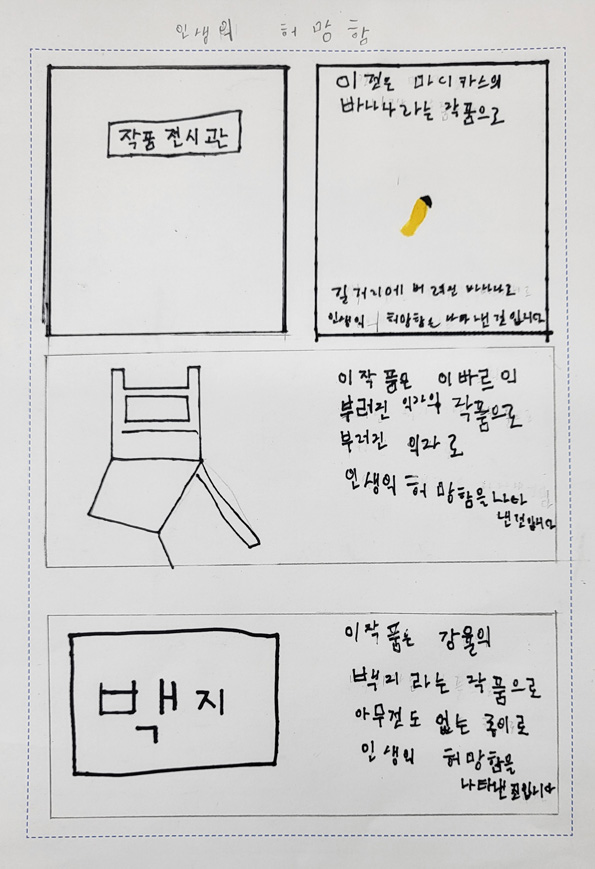 인생의 허망함
작품 전시관
이것은 마디카스의
바나나라는 작품으로
길거리에 버려진 바나나로
인생의 허망함을 나타낸것입니다
이작품은 이바르의
부러진 의자의 작품으로
부러진 의자로
인생의 허망함을 나타
낸것입니다
백지
이작품은 강율의
백지라는 작품으로
아무것도 없는 종이로
인생의 허망함을
나타낸것입니다